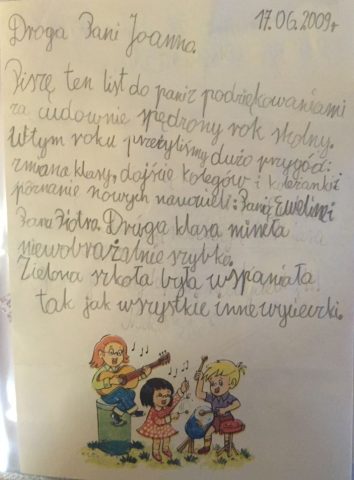 17.06.2009r
Droga Pani Joanno.
Piszę ten list do pani z podziękowaniami
za cudownie spędzony rok szkolny.
W tym roku przeżyliśmy dużo przygód:
zmiana klasy, dojście kolegów i koleżanki i
poznanie nowych nauczycieli: Panią Ewelinę i
Pana Piotra. Druga klasa mineła
niewobrażalnie szybko.
Zielona szkoła była wspaniała
tak jak wszystkie inne wycieczki.